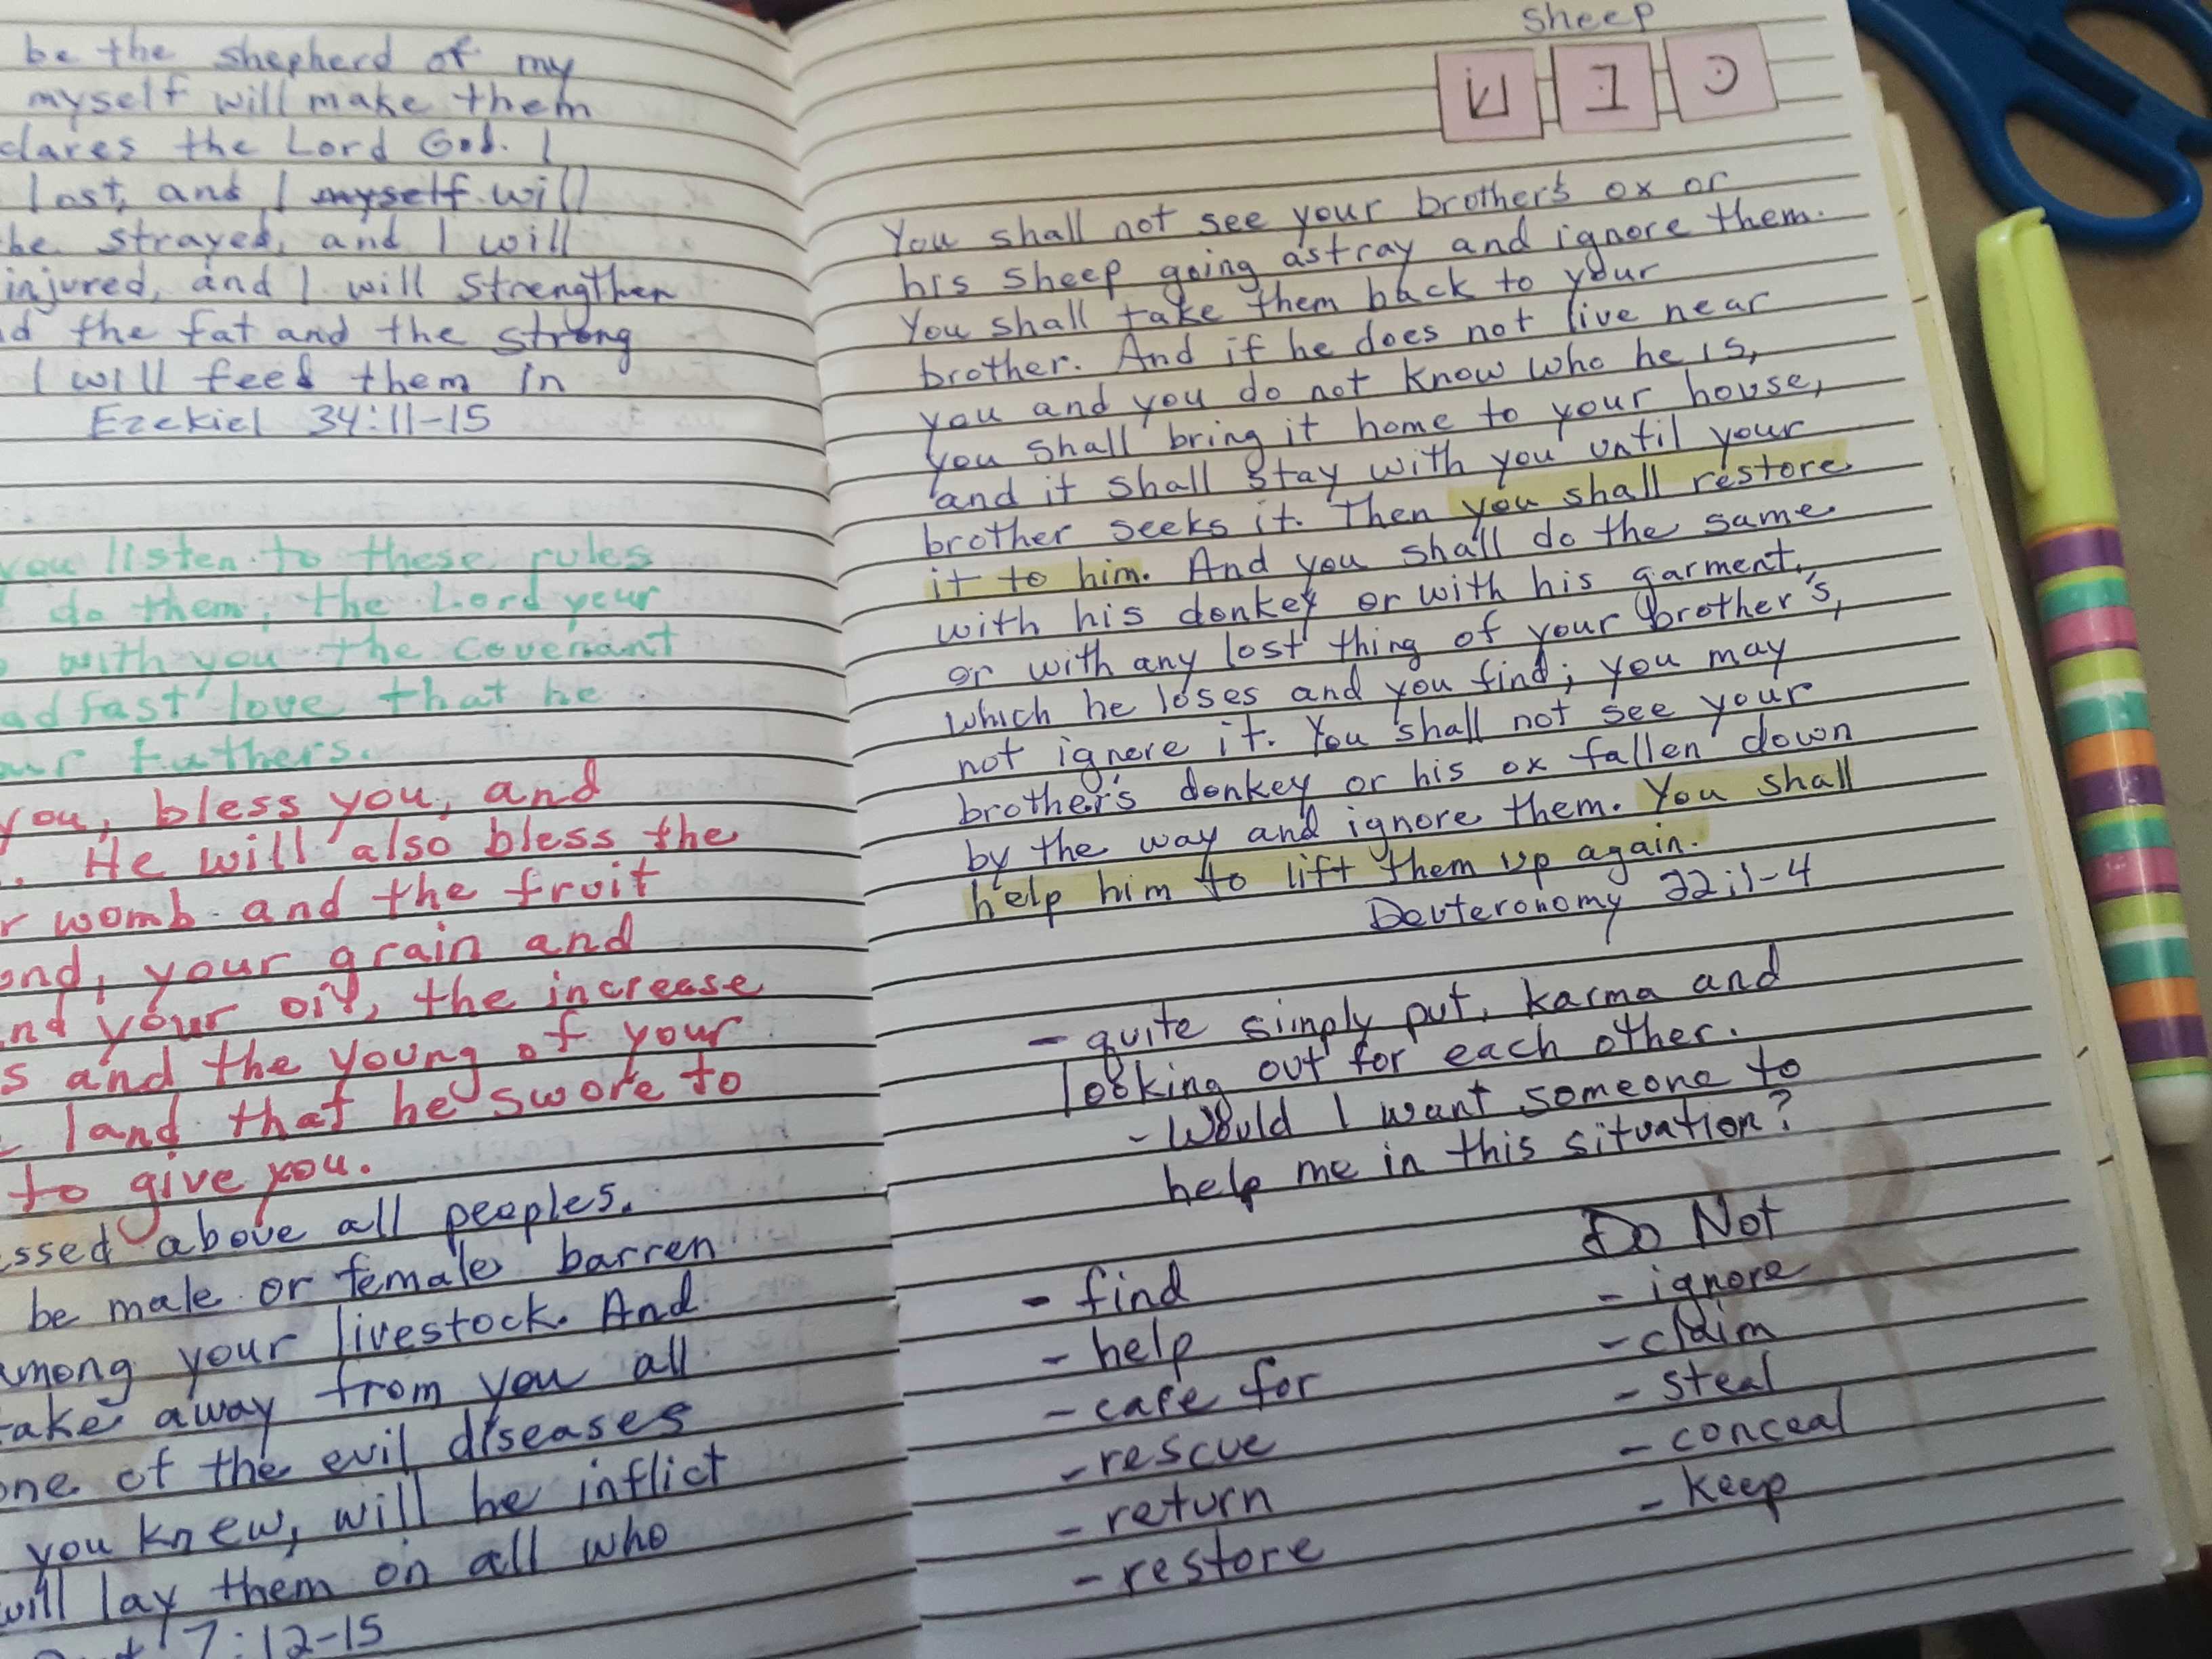 be the shepherd of my
myself will make them
clares the Lord God. I
lost, and I myself will
he strayed, and I will
injured, and I will strengthen
d the fat and the strong
I will feed them in
Ezekiel 34:11-15
you listen to these rules
do them, the Lord your
with you the covenant
adfast love that he
ur fathers.
you, bless you, and
. He will also bless the
r womb and the fruit
ond, your grain and
nd your oil, the increase
s and the young of your
land that he swore to
to give you.
ssed above all peoples.
be male or female barren
among your livestock. And
take away from you all
one of the evil diseases
you knew, will he inflict
will lay them on all who
7:12-15
Sheep
You shall not see your brother's ox or
his sheep going astray and ignore them.
You shall take them back to your
brother. And if he does not live near
you and you do not know who he is,
you shall bring it home to your house,
and it shall stay with you until your
brother seeks it. Then you shall restore
it to him. And you shall do the same
with his donkey or with his garment,
or with any lost thing of your brother's,
which he loses and you find; you may
not ignore it. You shall not see your
brother's donkey or his ox fallen down
by the way and ignore them. You shall
help him to lift them up again.
Deuteronomy 22:1-4
- quite simply put, karma and
looking out for each other.
- Would I want someone to
help me in this situation?
- find
- help
- care for
- rescue
- return
- restore
Do Not
- ignore
- claim
- steal
- conceal
- keep